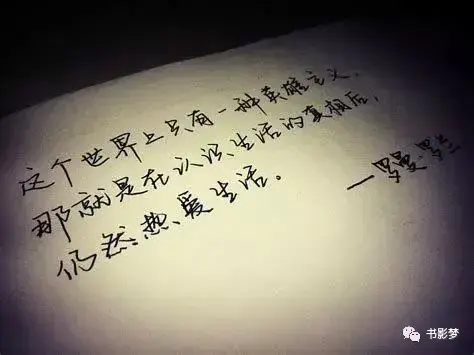 这个世界上只有一种英雄主义，
那就是在认识生活的真相后，
仍然热爱生活。
—罗曼·罗兰
书影梦